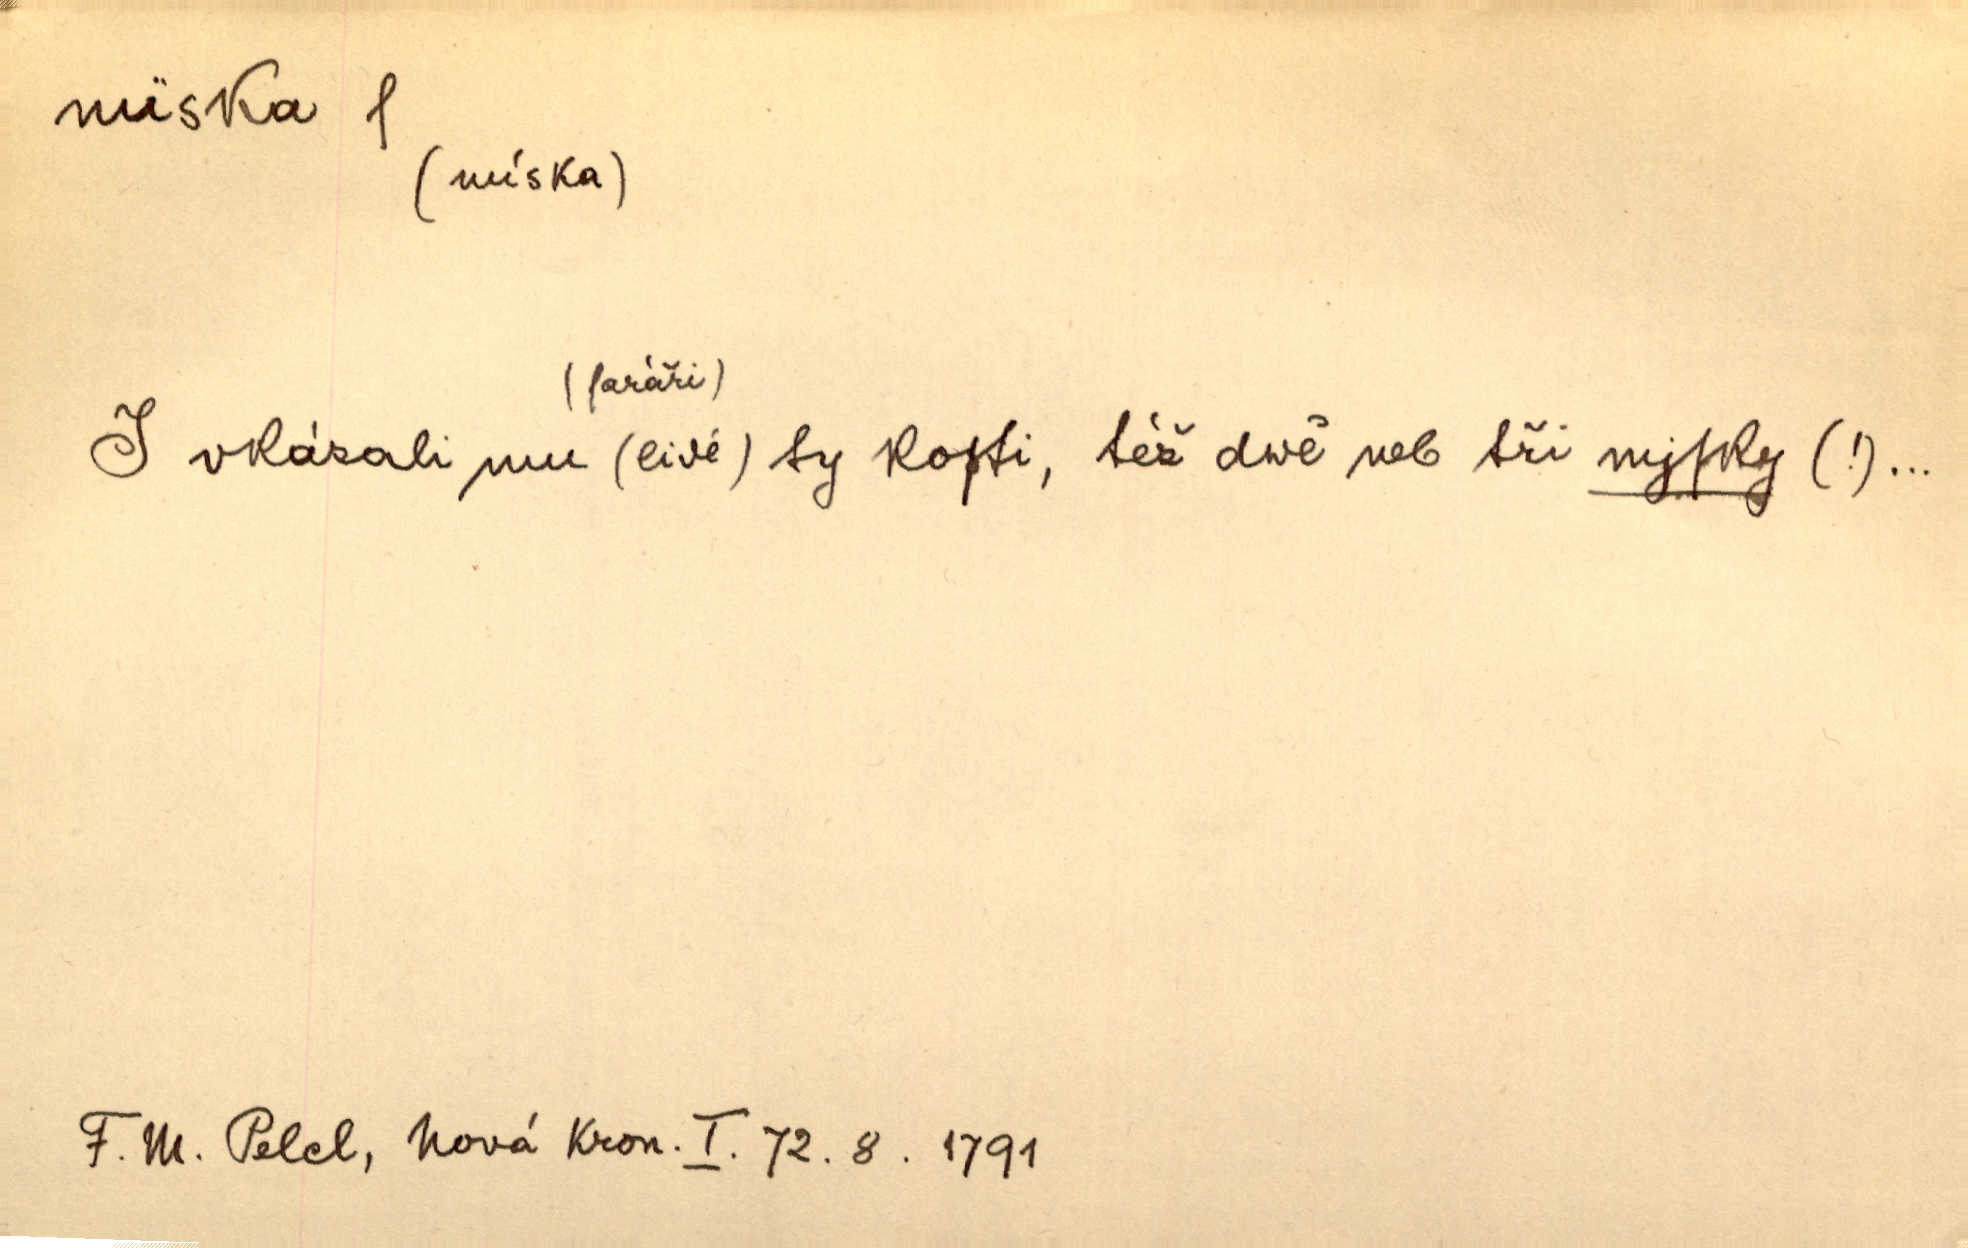 miska f
(míska)
(faráři)
I vkázali mu (civé) ty kosti, též dwě neb tři mjſky (!)...
F. M. Pelcl, Nová Kron. I. 72. 8. 1791